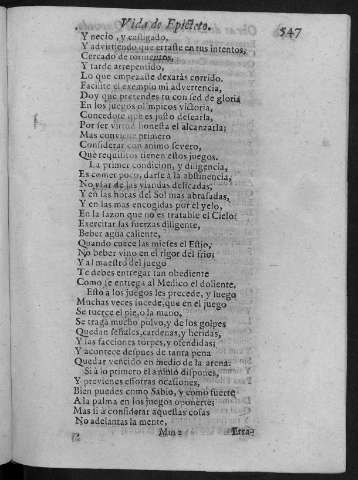 Vida de Epicteto.
547
Y necio, y castigado,
Y advirtiendo que erraste en tus intentos,
Cercado de tormentos,
Y tarde arrepentido,
Lo que empezaste dexaràs corrido.
Facilite el exemplo mi advertencia,
Doy que pretendes tu con sed de gloria
En los juegos olimpicos victoria,
Concedote que es justo desearla,
Por ser virtud honesta el alcanzarla;
Mas conviene primero
Considerar con animo severo,
Que requisitos tienen estos juegos.
La primer condicion, y diligencia,
Es comer poco, darse à la abstinencia,
No usar de las viandas delicadas,
Y en las horas del Sol mas abrasadas,
Y en las mas encogidas por el yelo,
En la sazon que no es tratable el Cielo
Exercitar las fuerzas diligente,
Beber agua caliente,
Quando cuece las mieses el Estio,
No beber vino en el rigor del frio;
Y al maestro del juego
Te debes entregar tan obediente
Como se entrega al Medico el doliente.
Esto à los juegos les precede, y luego
Muchas veces sucede, que en el juego
Se tuerce el pie, o la mano,
Se traga mucho polvo, y de los golpes
Quedan señales, cardenas, y heridas,
Y las facciones torpes, y ofendidas;
Y acontece despues de tanta pena
Quedar vencido en medio de la arena:
Si à lo primero el animo dispones,
Y previenes estotras ocasiones,
Bien puedes como Sabio, y como fuerte
A la palma en los juegos oponerte;
Mas si à considerar aquestas cosas
No adelantas la mente,
Mm 2